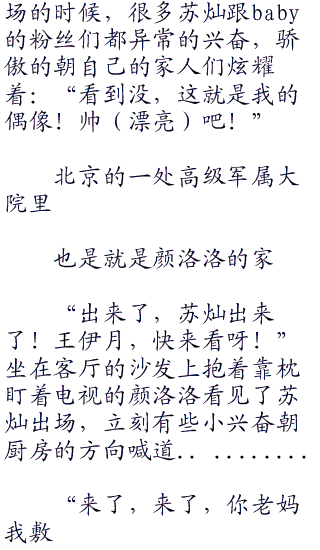 场的时候，很多苏灿跟baby
的粉丝们都异常的兴奋，骄
傲的朝自己的家人们炫耀
着：“看到没，这就是我的
偶像！帅（漂亮）吧！”
北京的一处高级军属大
院里
也是就是颜洛洛的家
“出来了，苏灿出来
了！王伊月，快来看呀！”
坐在客厅的沙发上抱着靠枕
盯着电视的颜洛洛看见了苏
灿出场，立刻有些小兴奋朝
厨房的方向喊道．．．．．．．．．．
“来了，来了，你老妈
我敷